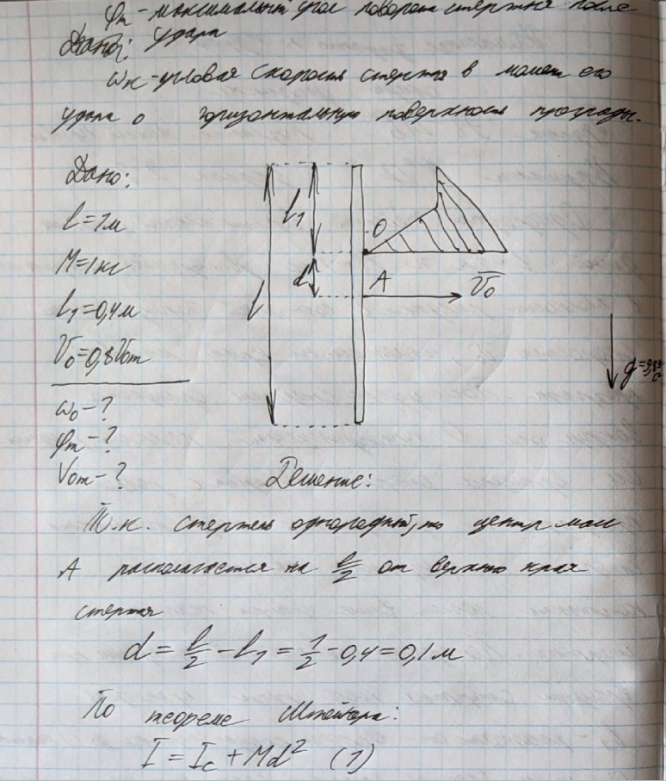 φm - максимальный угол поворота стержня после
Дано: удара
ωк - угловая скорость стержня в момент его
удара о горизонтальную поверхность преграды.
Дано:
l = 1м
M = 1кг
l₁ = 0,4м
V₀ = 0,8V₀m
ω₀ - ?
φm - ?
V₀m - ?
l
l₁
d
O
A
V̅₀
g = 9,8
Решение:
Т.к. стержень однородный, то центр масс
A располагается на l/2 от верхнего края
стержня
d = l/2 - l₁ = 1/2 - 0,4 = 0,1м
По теореме Штейнера:
I = Ic + Md² (1)